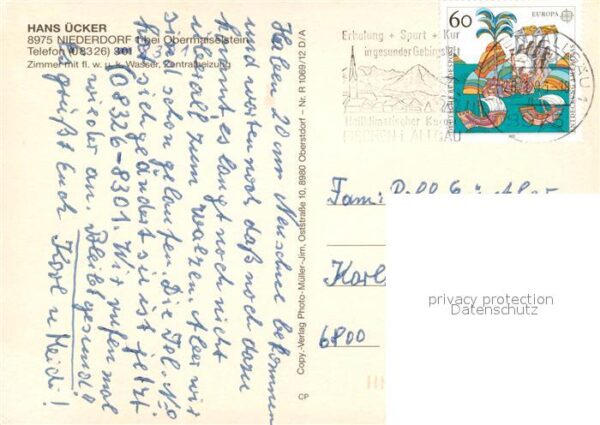 HANS ÜCKER
8975 NIEDERDORF 1 bei Obermaiselstein
Telefon (08326) 301
Zimmer mit fl. w. u. k. Wasser, Zentralheizung
Haben 20 cm Neuschnee bekommen
und warten noch, daß noch dazu
kommt, es langt noch nicht
überall zum walzen. Aber wir
sind schon gelaufen. Die Tel. No
hat sich geändert sie ist jetzt
08326-8301. Wir rufen mal
wieder an. Bleibt gesund!
Es grüßt Euch Karl u Heidi!
Copy.-Verlag Photo-Müller-Jim, Oststraße 10, 8980 Oberstdorf – Nr. R 1069/12 D/A
CP
Erholung + Sport + Kur
in gesunder Gebirgsluft
Heilklimatischer Kurort
FISCHEN i. ALLGÄU
60
EUROPA
DEUTSCHE BUNDESPOST
Fam.
Karls
6800
privacy protection
Datenschutz